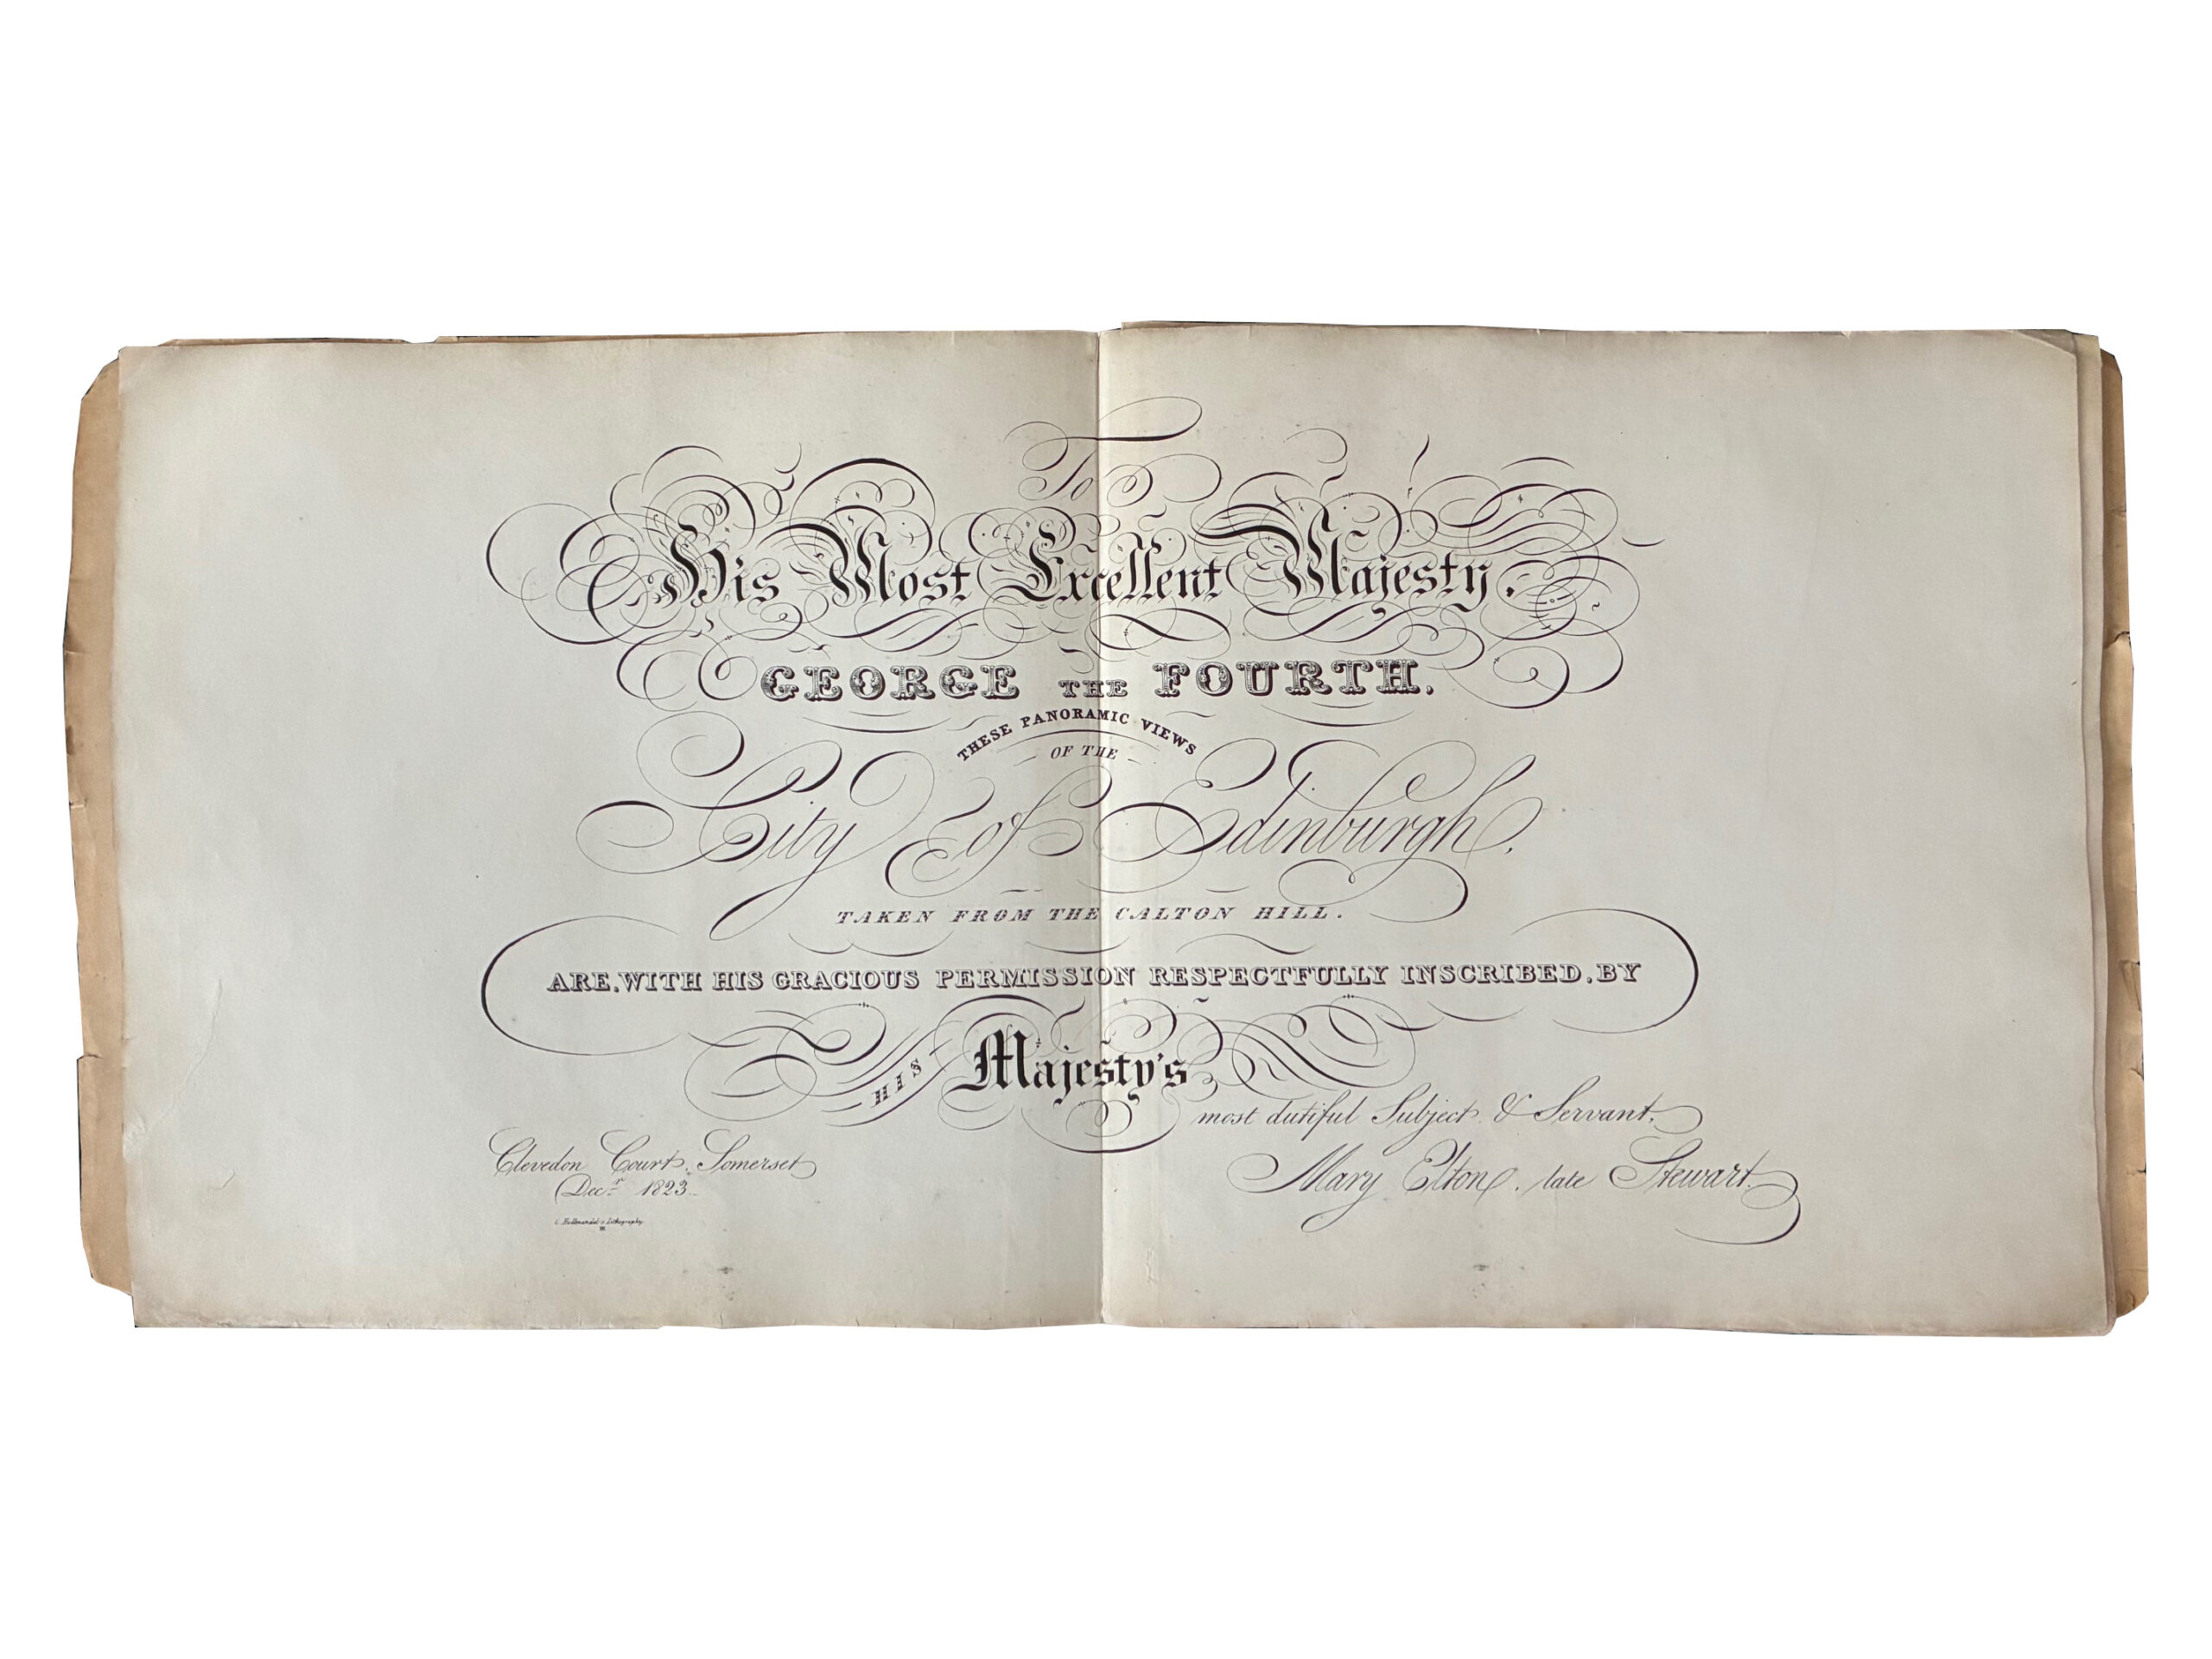 To
His Most Excellent Majesty,
GEORGE THE FOURTH,
THESE PANORAMIC VIEWS
OF THE
City of Edinburgh,
TAKEN FROM THE CALTON HILL.
ARE, WITH HIS GRACIOUS PERMISSION RESPECTFULLY INSCRIBED, BY
HIS Majesty's
most dutiful Subject & Servant,
Mary Elton, late Stewart.
Clevedon Court, Somerset
Decr. 1823.
C. Hullmandel's Lithography